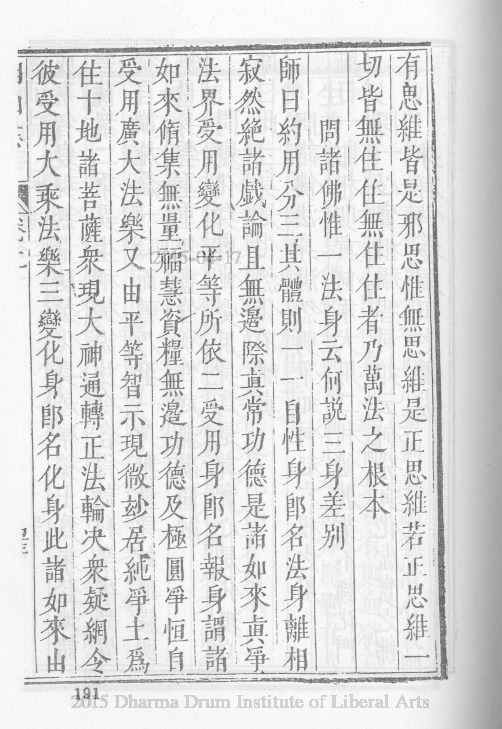 有思維皆是邪思惟無思維是正思維若正思維一
切皆無住住無住住者乃萬法之根本
問諸佛惟一法身云何說三身差別
師曰約用分三其體則一一自性身卽名法身離相
寂然絶諸戲論且無邊際眞常功德是諸如來眞淨
法界受用變化平等所依二受用身卽名報身謂諸
如來脩集無量福慧資糧無邊功德及極圓淨恒自
受用廣大法樂又由平等智示現微玅居純淨土爲
住十地諸菩薩衆現大神通轉正法輪决衆疑網令
彼受用大乘法樂三變化身卽名化身此諸如來由
191
2015 Dharma Drum Institute of Liberal Arts